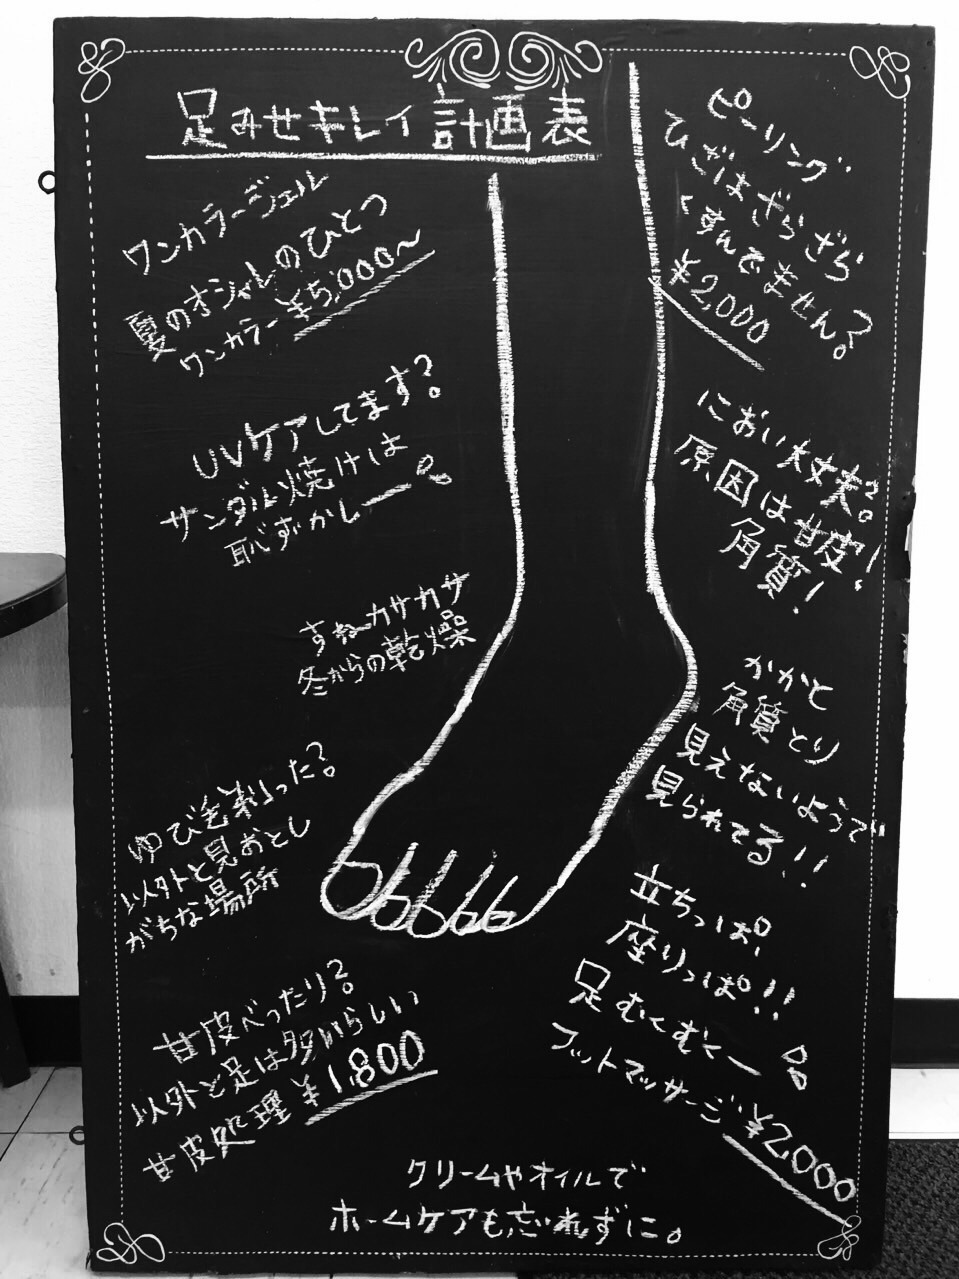 足みせキレイ計画表
ワンカラージェル
夏のオシャレのひとつ
ワンカラー ¥5,000〜
UVケアしてます?
サンダル焼けは
恥ずかしー。
すねカサカサ
冬からの乾燥
ゆび毛剃った?
以外と見おとし
がちな場所
甘皮べったり?
以外と足は多いらしい
甘皮処理 ¥1,800
ピーリング
ひざはざらざら
くすんでません?
¥2,000
におい大丈夫?
原因は甘皮!
角質!
かかと
角質とり
見えないようで
見られてる!!
立ちっぱ!
座りっぱ!!
足むくむくー。
フットマッサージ ¥2,000
クリームやオイルで
ホームケアも忘れずに。